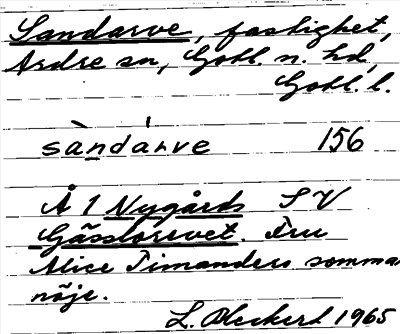 Sandarve, fastighet,
Ardre sn, Gotl. n. hd,
Gotl. l.
sàndárve 156
Å 1 Nygårds SV
Gässlorevet. Fru
Alice Timanders sommar
nöje.
L. Oleskert 1965